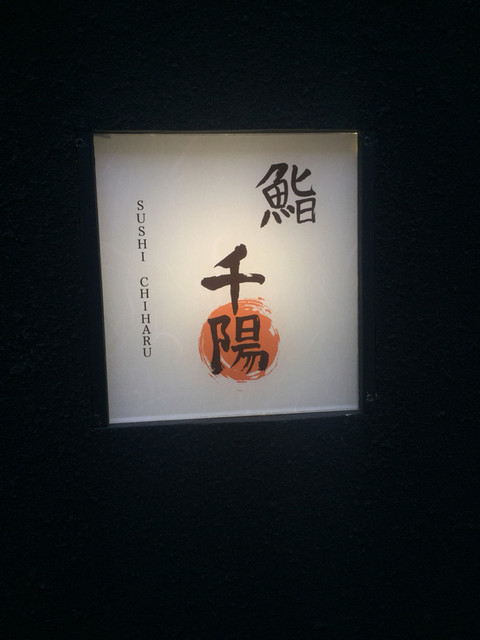 鮨
千陽
SUSHI CHIHARU